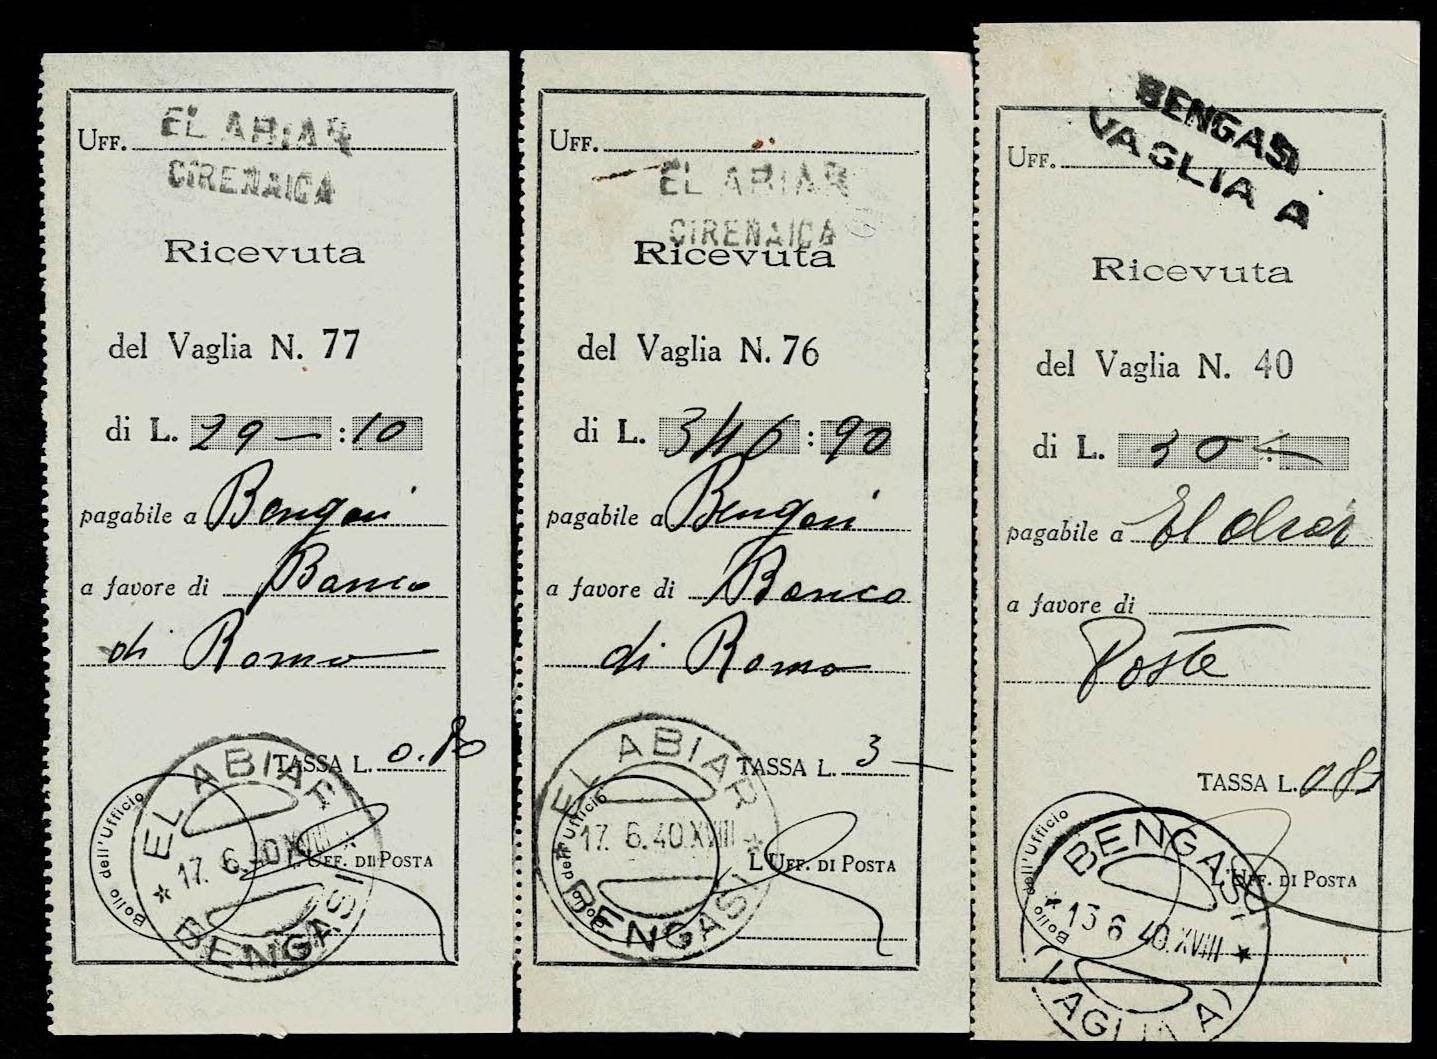 UFF. EL ABIAR
CIRENAICA
Ricevuta
del Vaglia N. 77
di L. 29 — : 10
pagabile a Bengasi
a favore di Banco
di Roma
TASSA L. 0.80
L'UFF. DI POSTA
Bollo dell'Ufficio
EL ABIAR
17. 6. 40 XVIII
BENGASI
UFF.
EL ABIAR
CIRENAICA
Ricevuta
del Vaglia N. 76
di L. 346 : 90
pagabile a Bengasi
a favore di Banco
di Roma
TASSA L. 3 —
L'UFF. DI POSTA
Bollo dell'Ufficio
EL ABIAR
17. 6. 40 XVIII
BENGASI
BENGASI
VAGLIA A
UFF.
Ricevuta
del Vaglia N. 40
di L. 30 : —
pagabile a El
a favore di
Poste
TASSA L. 0 80
L'UFF. DI POSTA
Bollo dell'Ufficio
BENGASI
13 6 40. XVIII
(VAGLIA A)